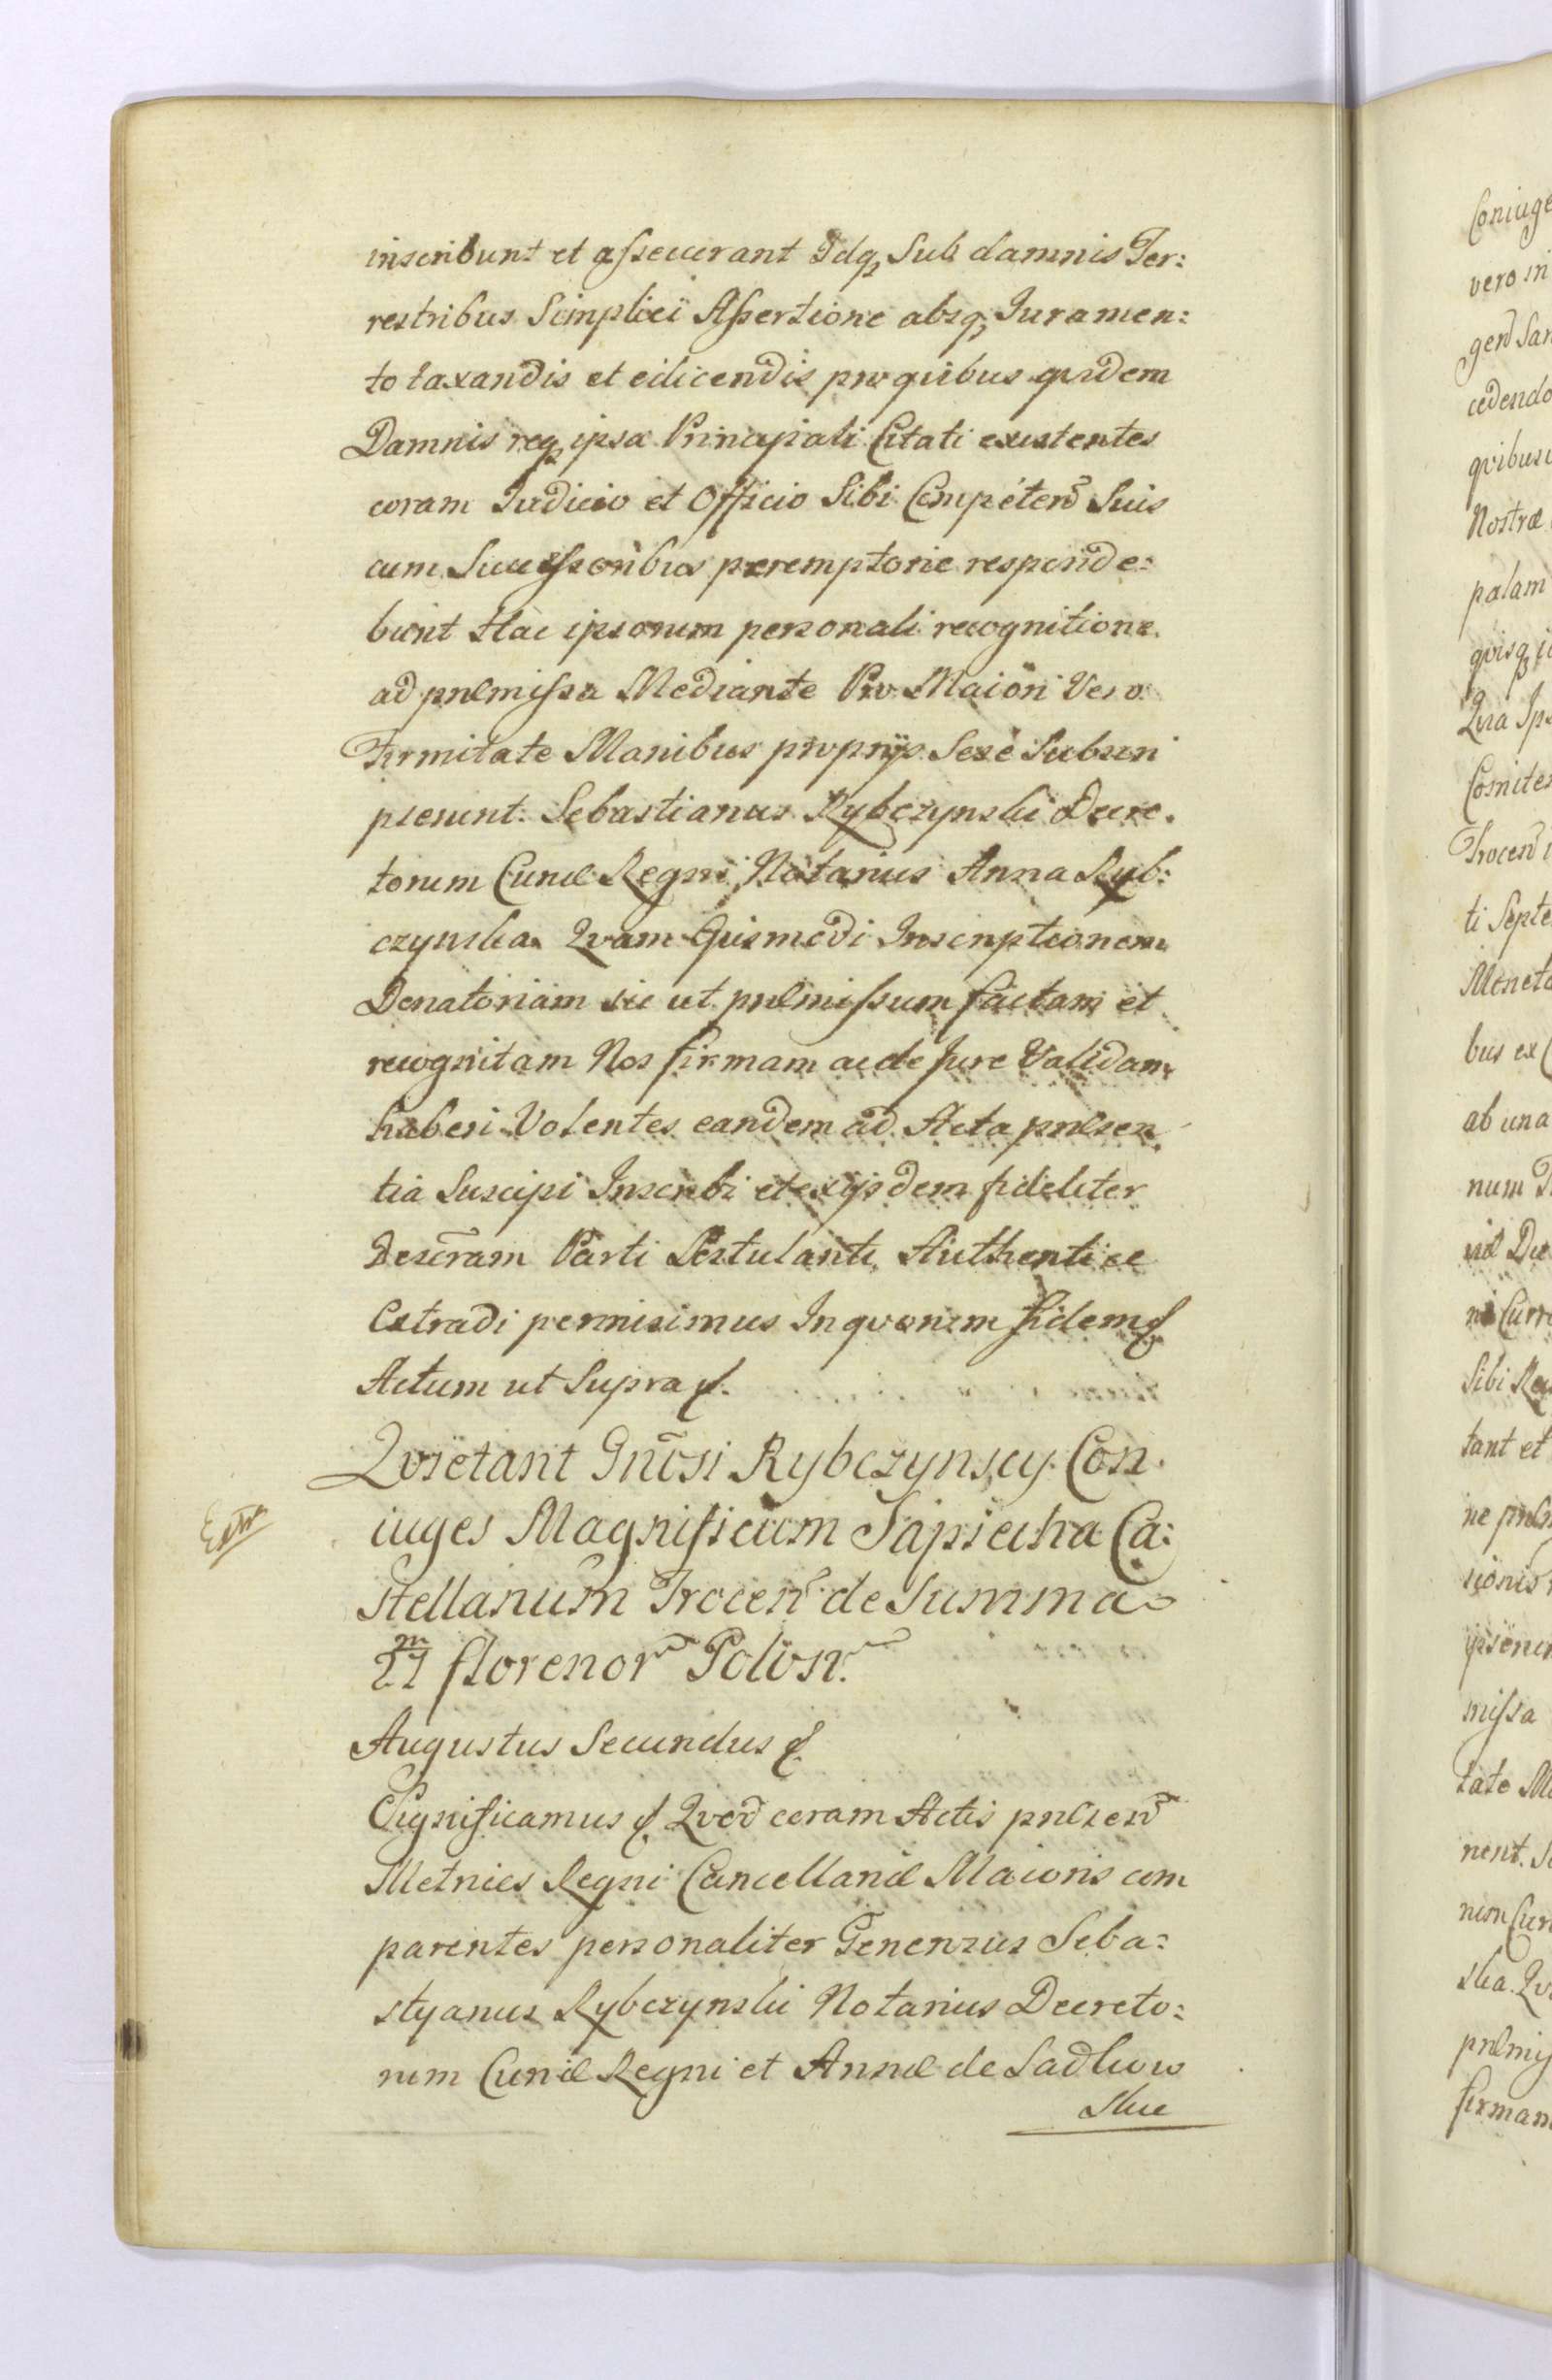 inscribunt et assecurant Idq Sub damnis Ter:
restribus Simplici Assertione absq Iuramen:
to taxandis et edicendis pro quibus quidem
Damnis req ipsa Principali Citati existentes
coram Iudicio et Officio Sibi Competen Suis
cum Successoribus peremptorie responde:
bunt Hac ipsorum personali recognitione
ad præmissa Mediante Pro Maiori Vero
Firmitate Manibus proprijs Sese Subscri
pserunt. Sebastianus Rybczynski Decre.
torum Curiæ Regni Notarius Anna Ryb:
czynska. Qvam Ejusmodi Inscriptionem
Donatoriam sic ut præmissum factam et
recognitam Nos firmam ac de Jure Validam
haberi Volentes eandem ad Acta præsen
tia Suscipi Inscribi et ex ijsdem fideliter
Descram Parti Postulanti Authentice
Extradi permisimus In quorum fidem &
Actum ut Supra &.
Qvietant Gnosi Rybczynscy Con
iuges Magnificum Sapiecha Ca:
stellanum Trocen de Summa
21 m florenor Polon.
Augustus Secundus &
Significamus & Qvod coram Actis præsen
Metrices Regni Cancellariæ Maioris com
parentes personaliter Generosus Seba:
styanus Rybczynski Notarius Decreto:
rum Curiæ Regni et Annæ de Sadkow
skie
Coniuge
vero in
gen San
cedendo
qvibusc
Nostræ
palam
qvisq
Qvia Ips
Comites
Trocen
ti Septe
Moneta
bus ex
ab una
num
ni Curr
Sibi Req
tant et
missa
tate Ma
firmam